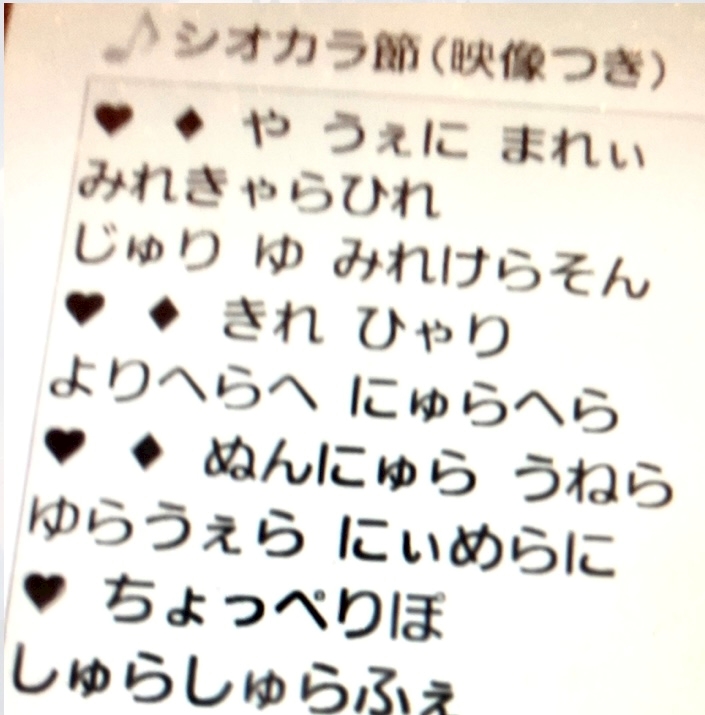 ♪シオカラ節(映像つき)
♥ ♦ や うぇに まれぃ
みれきゃらひれ
じゅり ゆ みれけらそん
♥ ♦ きれ ひゃり
よりへらへ にゅらへら
♥ ♦ ぬんにゅら うねら
ゆらうぇら にぃめらに
♥ ちょっぺりぽ
しゅらしゅらふぇ